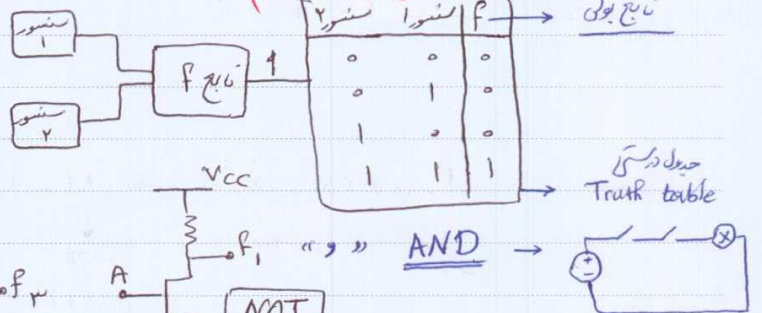 سنسور ۱
سنسور ۲
تابع f
f
سنسور ۲ سنسور ۱ f
۰ ۰ ۰
۰ ۱ ۰
۱ ۰ ۰
۱ ۱ ۱
تابع بولی
جدول درستی
Truth table
VCC
f₁
«و» AND
f۳
A
NOT